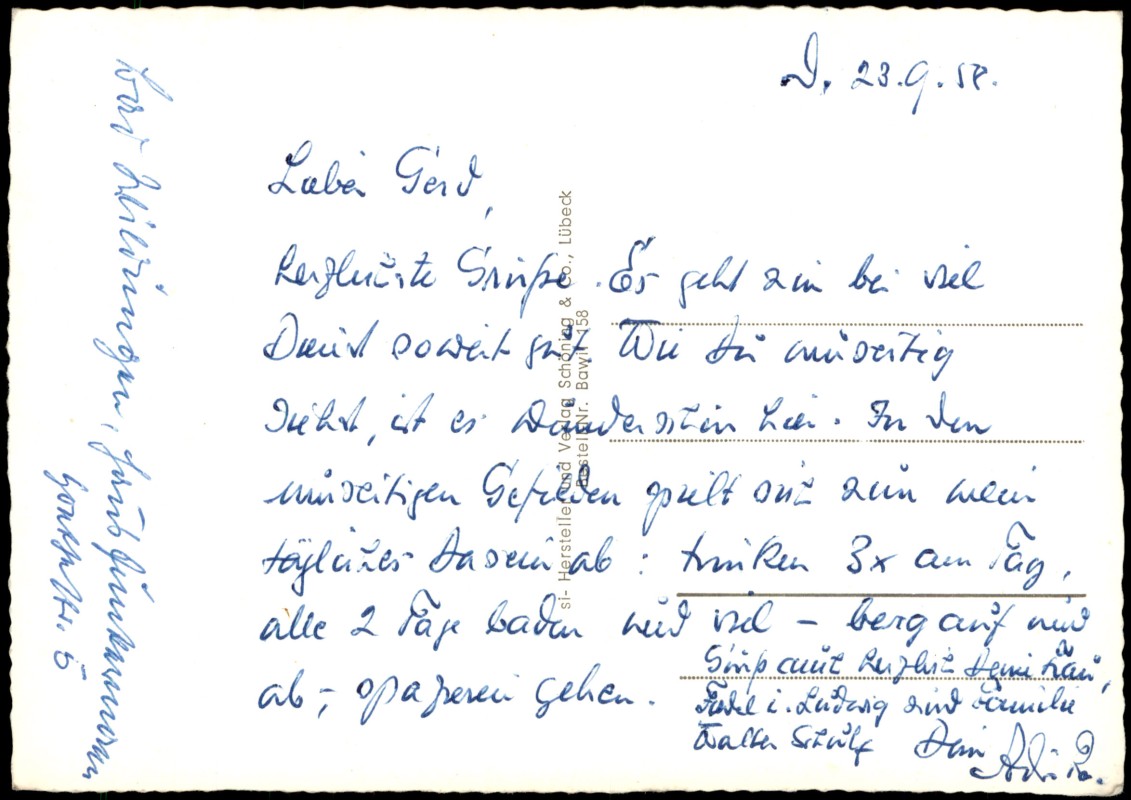 D. 23.9.58.
Lieber Gerd,
herzlichste Grüße. Es geht mir bei viel
Durst soweit gut. Wie Du umseitig
siehst, ist es wunderschön hier. In den
umseitigen Gefilden spielt sich nun mein
tägliches Dasein ab: trinken 3x am Tag,
alle 2 Tage baden und viel – bergauf und
ab –, spazieren gehen.
Grüß auch herzlich Deine Frau,
i. Ludwig und Familie
Walter Schulz Dein
Bad Wildungen, Haus
Str. 5
si- Hersteller und Verlag Schöning & Co., Lübeck
Bestell-Nr. Bawi 158